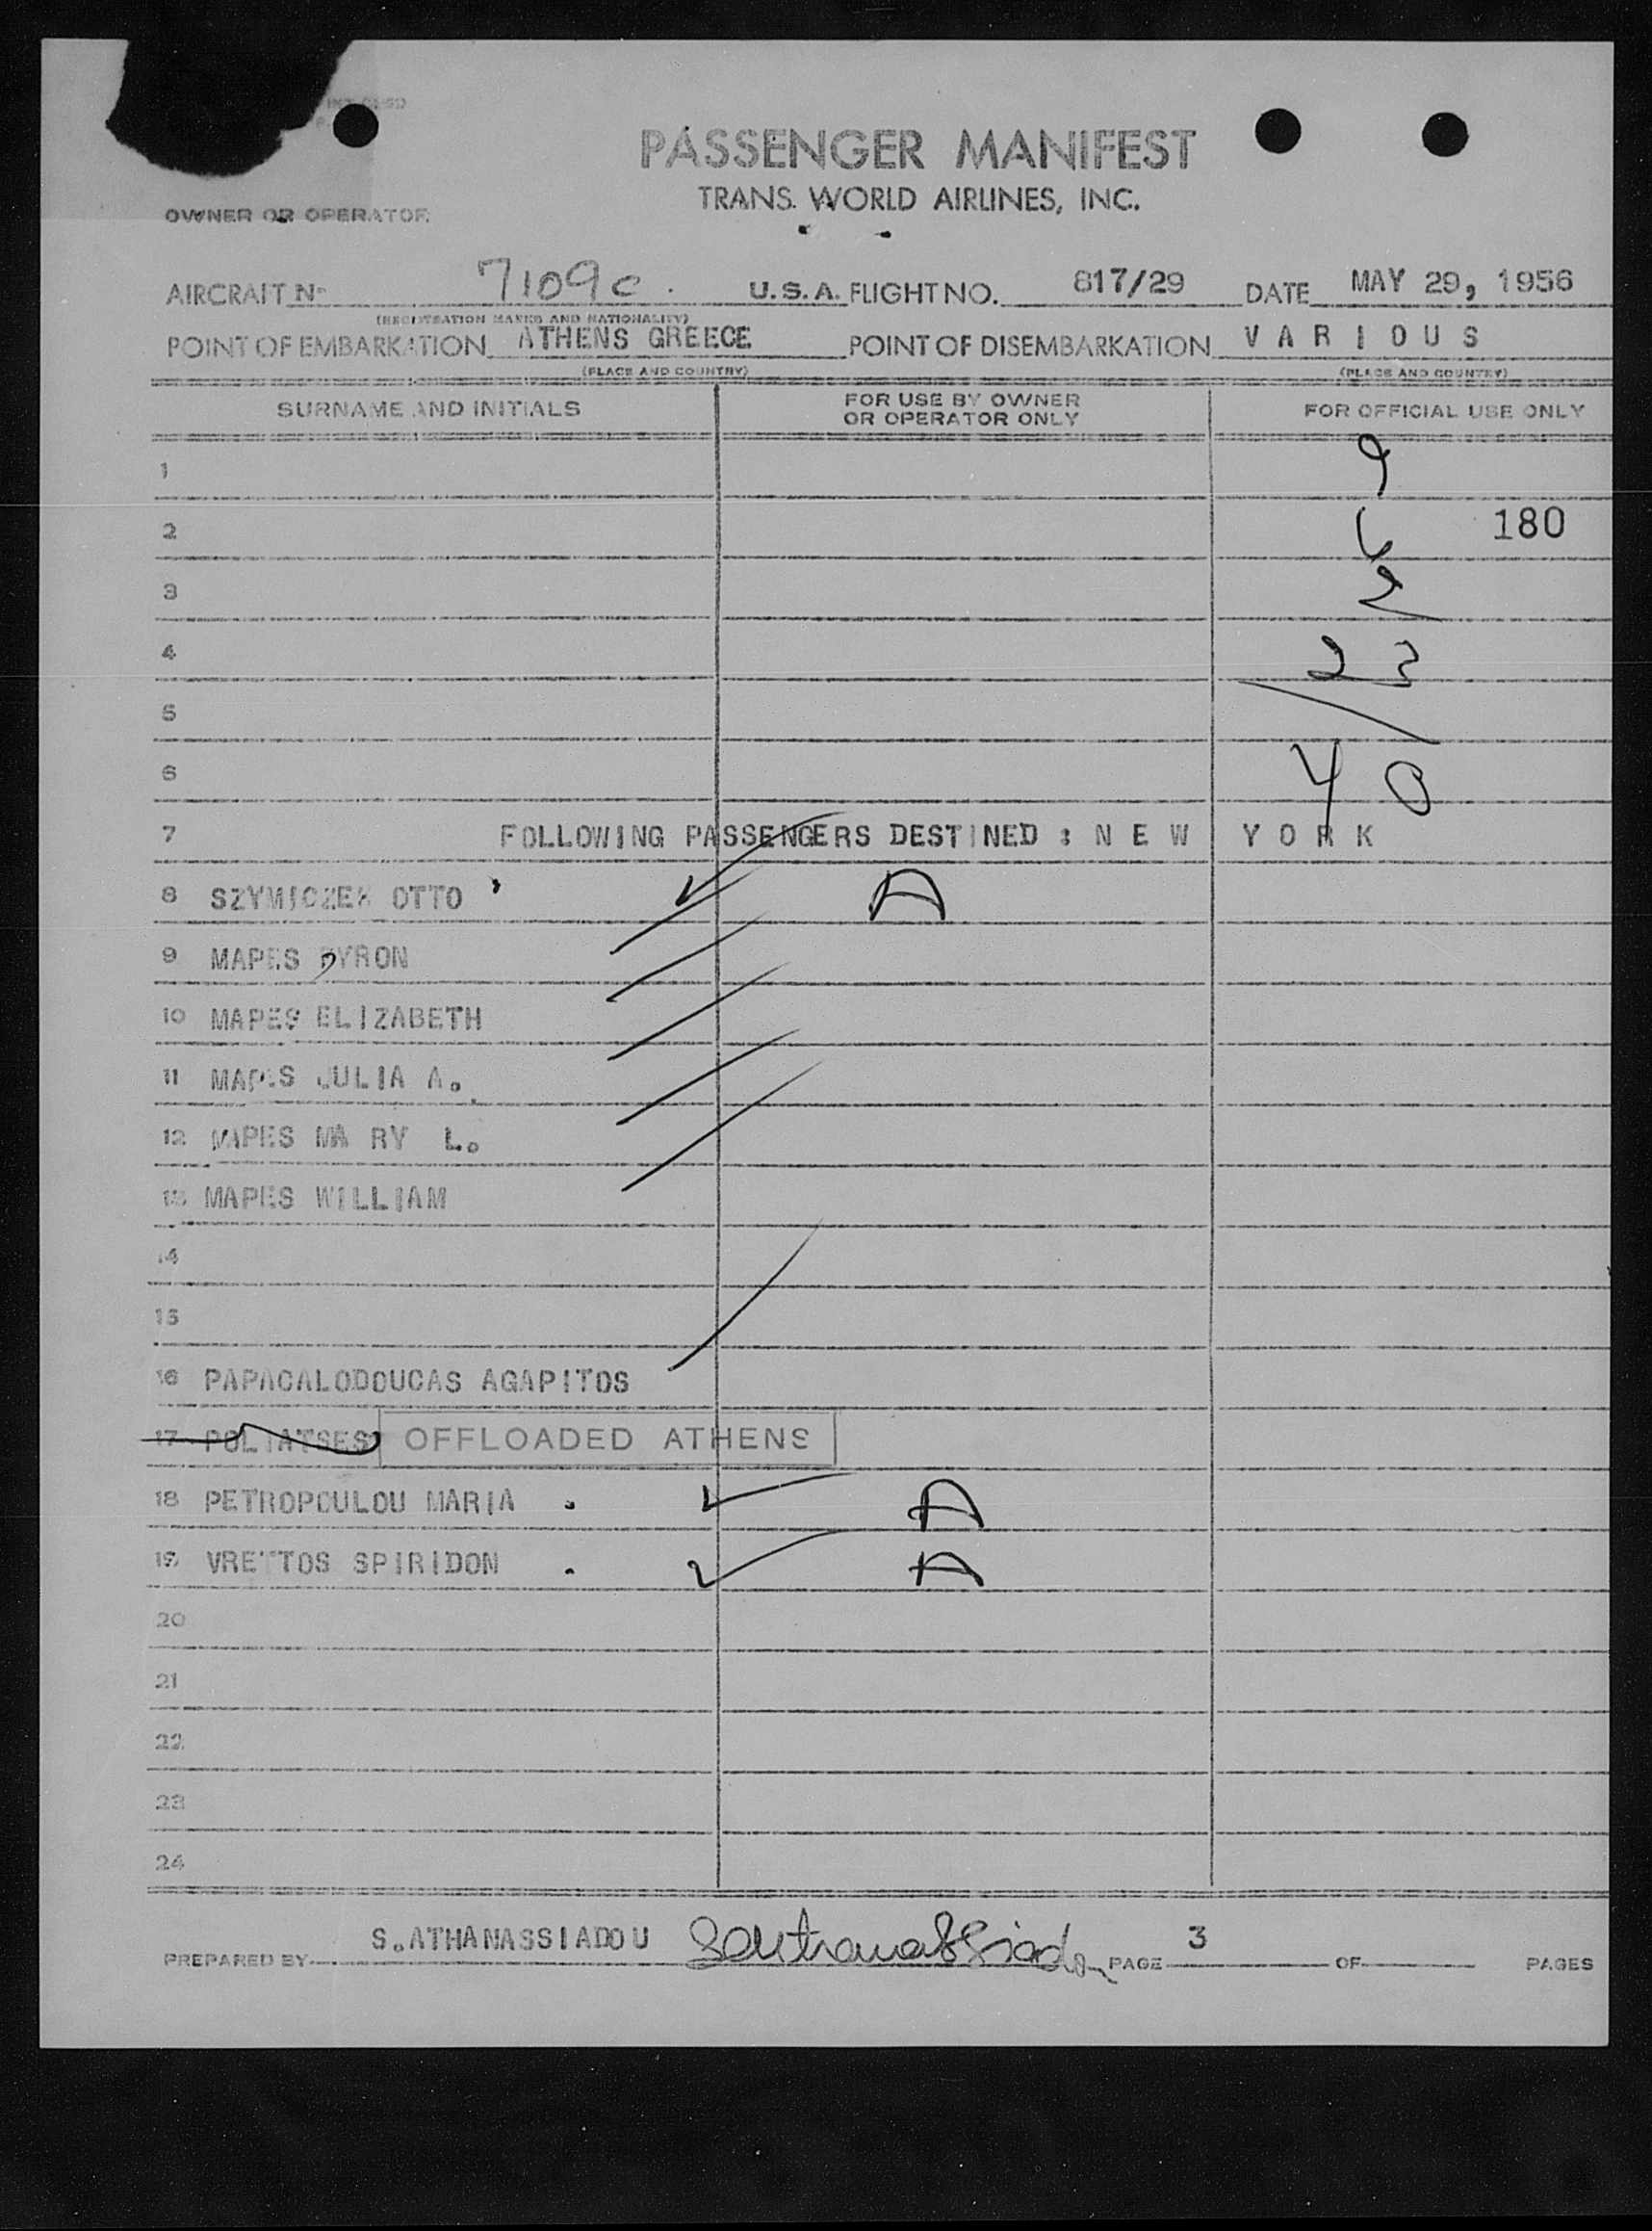 PASSENGER MANIFEST
TRANS. WORLD AIRLINES, INC.
OWNER OR OPERATOR
AIRCRAFT Nº 7109c. U.S.A. FLIGHT NO. 817/29 DATE MAY 29, 1956
(REGISTRATION MARKS AND NATIONALITY)
POINT OF EMBARKATION ATHENS GREECE POINT OF DISEMBARKATION VARIOUS
(PLACE AND COUNTRY) (PLACE AND COUNTRY)
SURNAME AND INITIALS FOR USE BY OWNER OR OPERATOR ONLY FOR OFFICIAL USE ONLY
1 9
2 6 180
3 2
4 23
5
6 40
7 FOLLOWING PASSENGERS DESTINED : NEW YORK
8 SZYMICZEK OTTO A
9 MAPES BYRON
10 MAPES ELIZABETH
11 MAPES JULIA A.
12 MAPES MA RY L.
13 MAPES WILLIAM
14
15
16 PAPACALODOUCAS AGAPITOS
17 POLIATSES OFFLOADED ATHENS
18 PETROPOULOU MARIA . A
19 VRETTOS SPIRIDON . A
20
21
22
23
24
PREPARED BY S.ATHANASSIADOU SAthanassiadou PAGE 3 OF PAGES